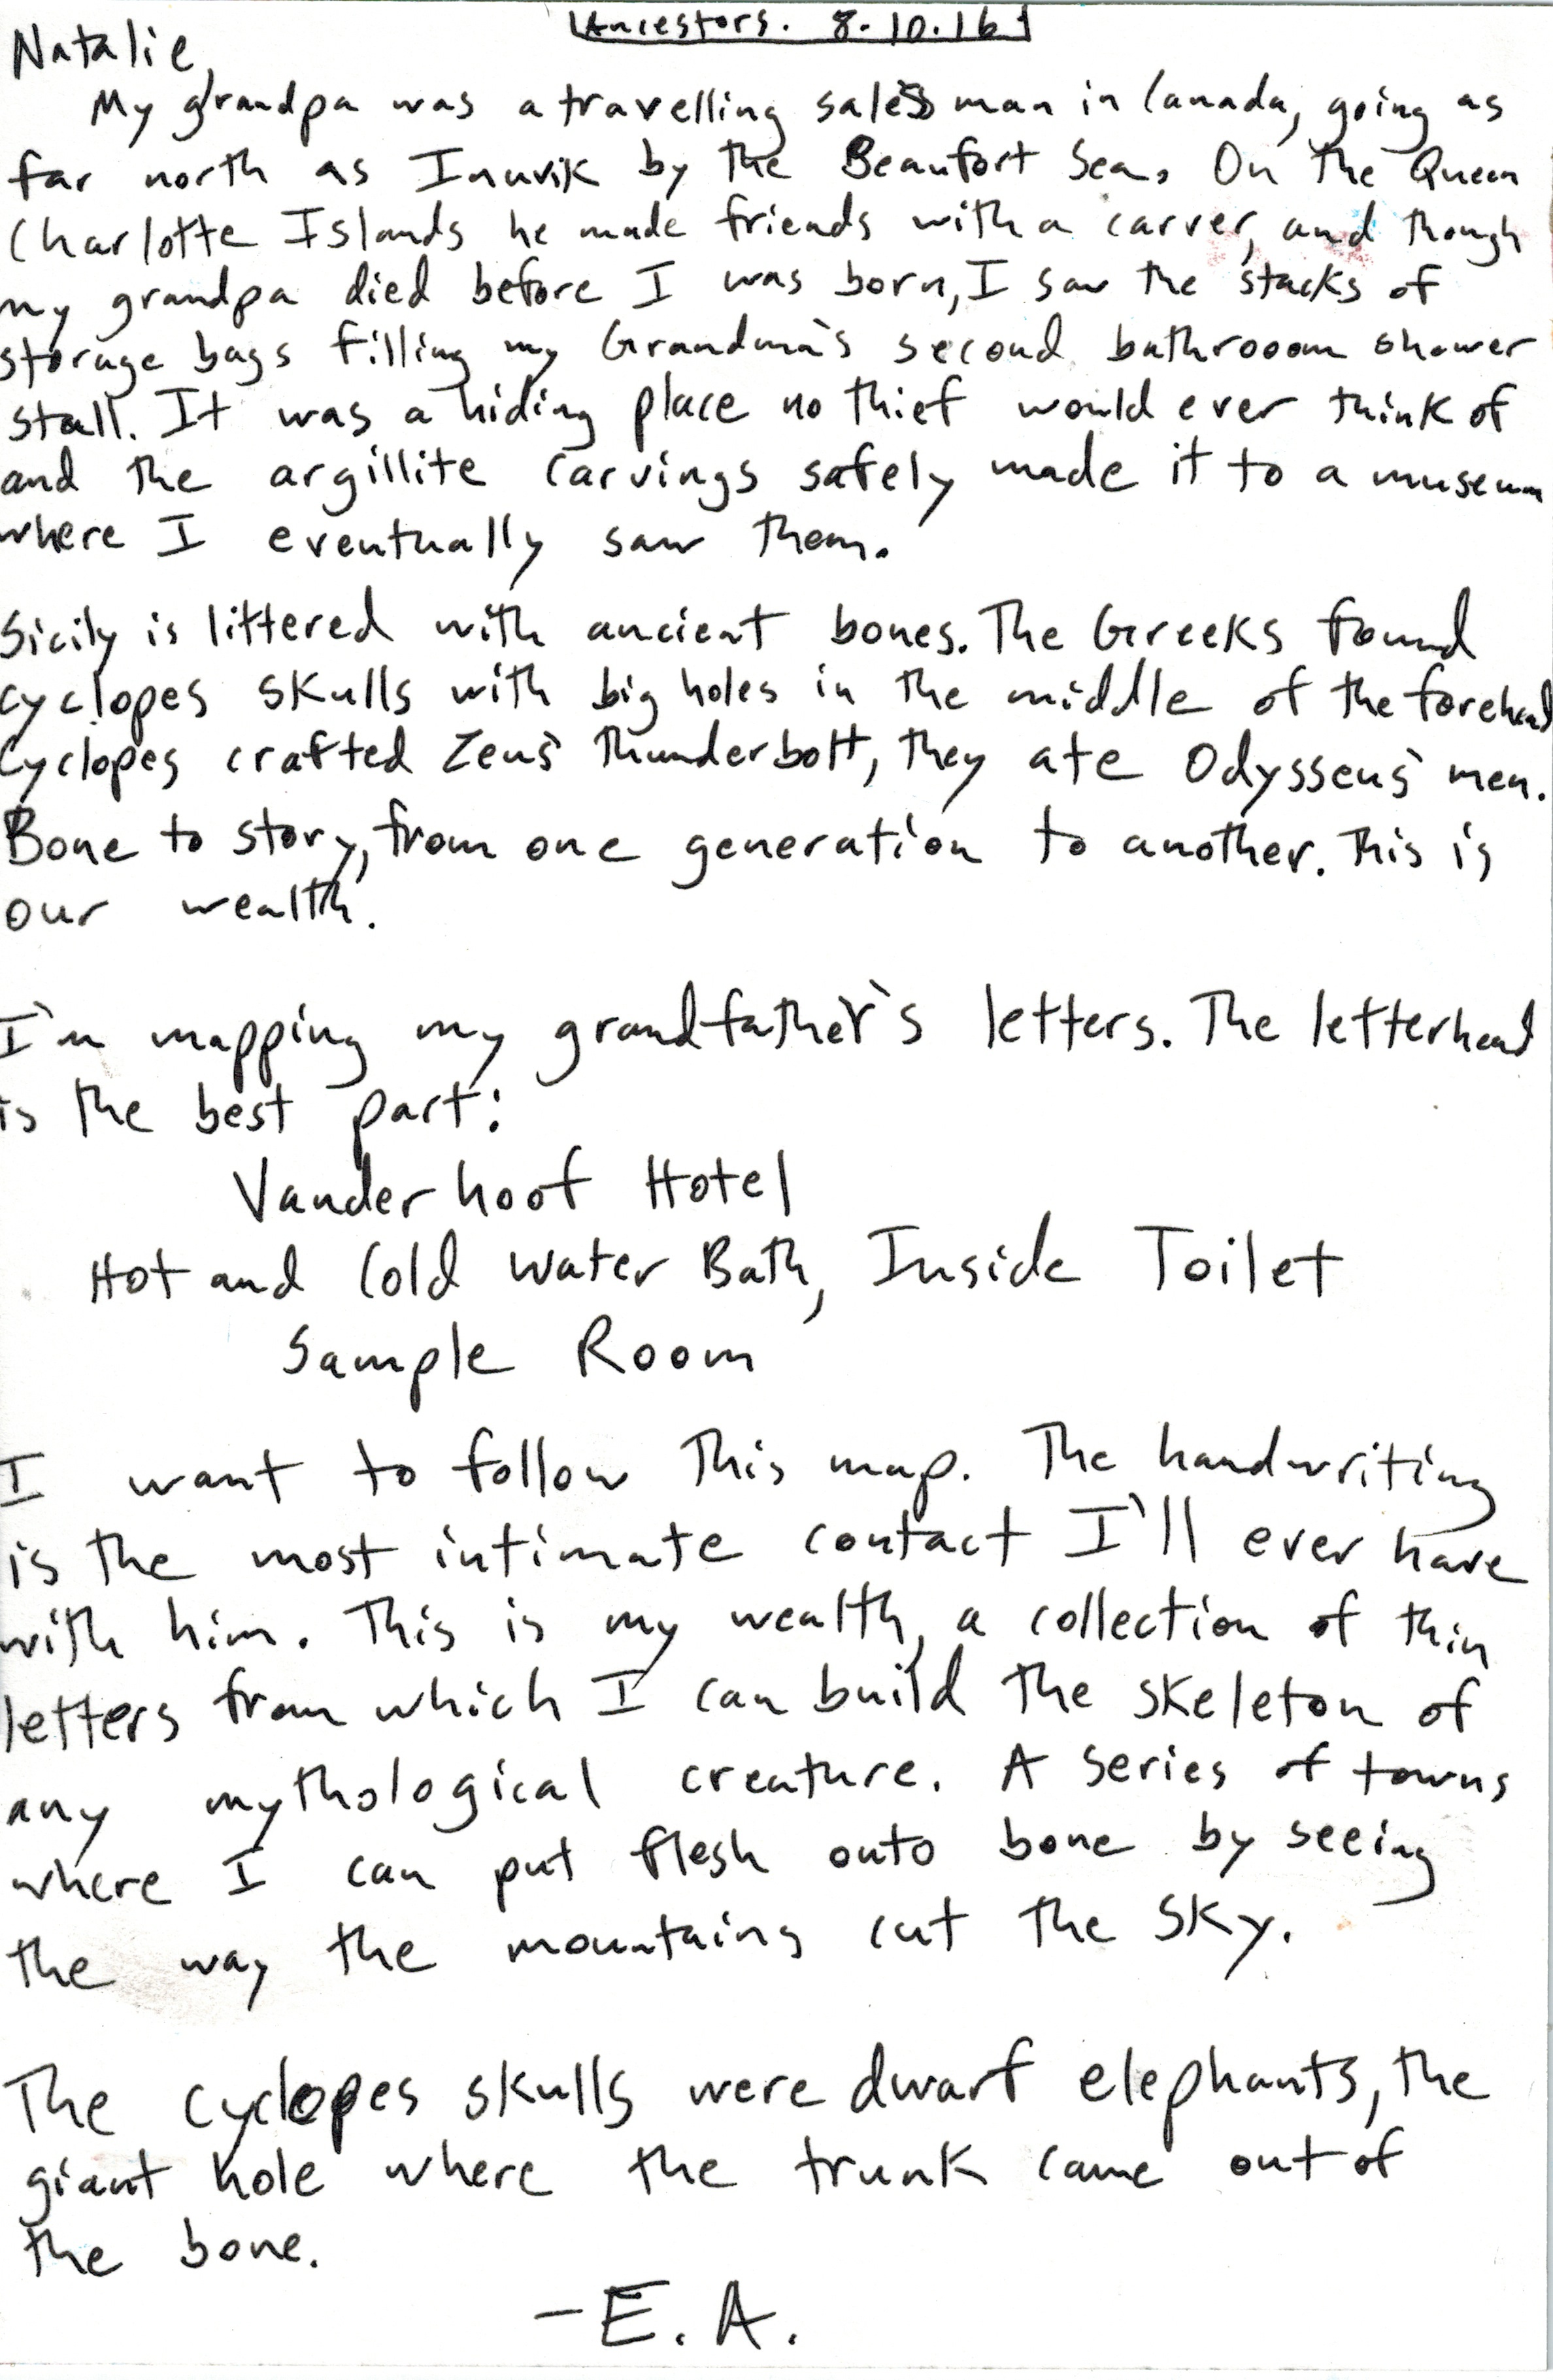 Ancestors. 8.10.16
Natalie,
My grandpa was a travelling salesman in Canada, going as
far north as Inuvik by the Beaufort Sea. On the Queen
Charlotte Islands he made friends with a carver, and though
my grandpa died before I was born, I saw the stacks of
storage bags filling my Grandma's second bathrooom shower
stall. It was a hiding place no thief would ever think of
and the argillite carvings safely made it to a museum
where I eventually saw them.
Sicily is littered with ancient bones. The Greeks found
cyclopes skulls with big holes in the middle of the forehead
Cyclopes crafted Zeus' thunderbolt, they ate Odysseus' men.
Bone to story, from one generation to another. This is
our wealth.
I'm mapping my grandfather's letters. The letterhead
is the best part:
Vanderhoof Hotel
Hot and Cold Water Bath, Inside Toilet
Sample Room
I want to follow this map. The handwriting
is the most intimate contact I'll ever have
with him. This is my wealth, a collection of thin
letters from which I can build the skeleton of
any mythological creature. A series of towns
where I can put flesh onto bone by seeing
the way the mountains cut the sky.
The cyclopes skulls were dwarf elephants, the
giant hole where the trunk came out of
the bone.
-E.A.